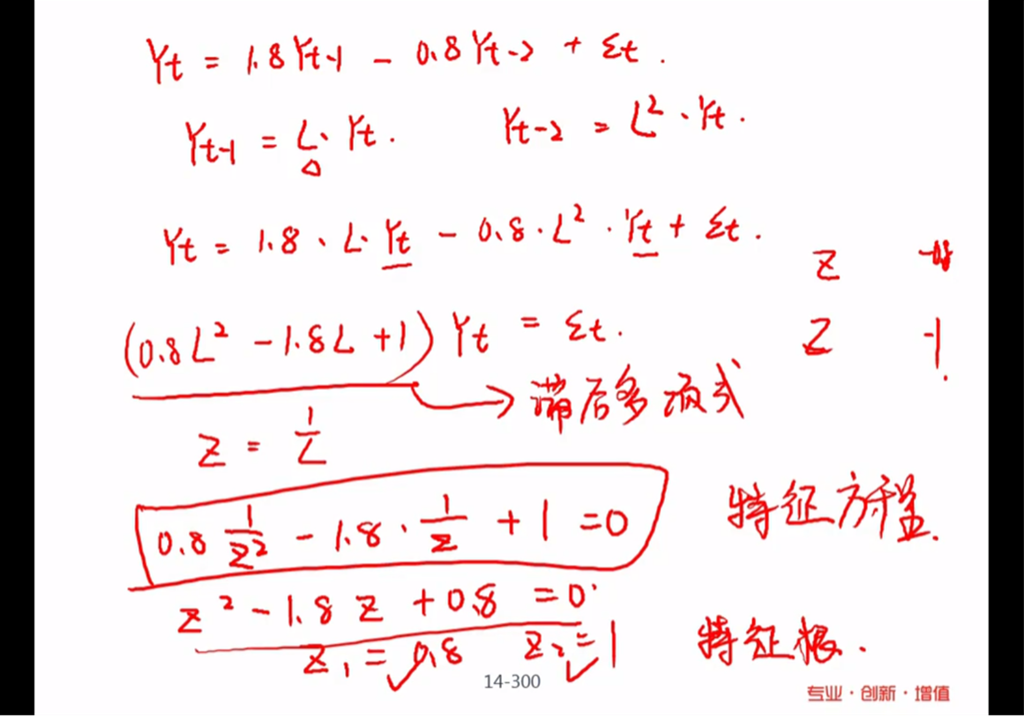 Yt = 1.8Yt-1 - 0.8Yt-2 + Σt.
Yt-1 = L·Yt. Yt-2 = L²·Yt.
Yt = 1.8·L·Yt - 0.8·L²·Yt + Σt.
Z
(0.8L² - 1.8L + 1) Yt = Σt. Z -1
滞后多项式
Z = 1/L
0.8 1/Z² - 1.8·1/Z + 1 = 0 特征方程.
Z² - 1.8Z + 0.8 = 0
Z₁ = 0.8 Z₂ = 1 特征根.
14-300
专业·创新·增值